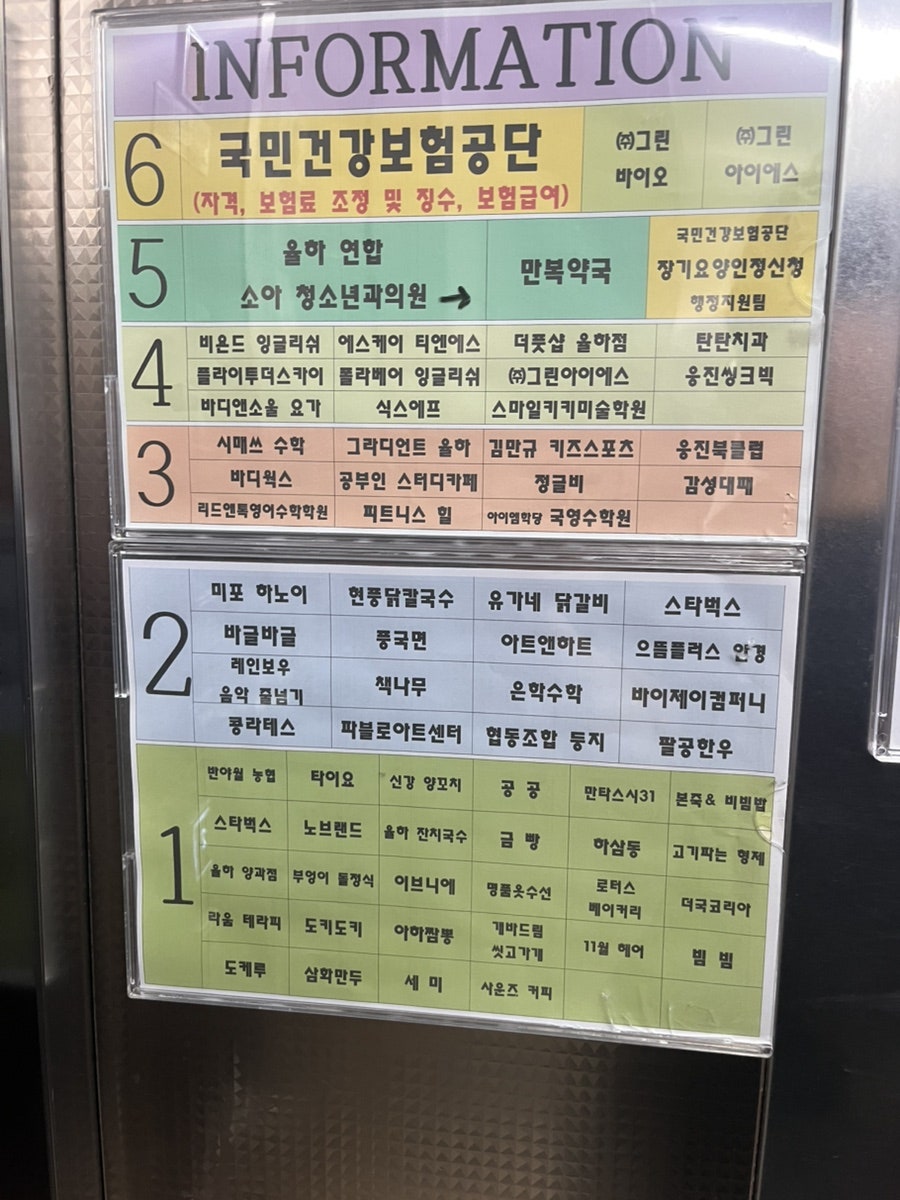 INFORMATION
6
국민건강보험공단
(자격, 보험료 조정 및 징수, 보험급여)
㈜그린
바이오
㈜그린
아이에스
5
율하 연합
소아 청소년과의원 →
만복약국
국민건강보험공단
장기요양인정신청
행정지원팀
4
비욘드 잉글리쉬 에스케이 티엔에스 더풋샵 율하점 탄탄치과
플라이투더스카이 폴라베어 잉글리쉬 ㈜그린아이에스 웅진씽크빅
바디앤소울 요가 식스에프 스마일키키미술학원
3
시매쓰 수학 그라디언트 율하 김만규 키즈스포츠 웅진북클럽
바디웍스 공부인 스터디카페 정글비 감성대패
리드앤톡영어수학학원 피트니스 힐 아이엠학당 국영수학원
2
미포 하노이 현풍닭칼국수 유가네 닭갈비 스타벅스
바글바글 풍국면 아트앤하트 으뜸플러스 안경
레인보우
음악 줄넘기 책나무 은학수학 바이제이컴퍼니
콩라테스 파블로아트센터 협동조합 둥지 팔공한우
1
반야월 농협 타이요 신강 양꼬치 공 공 만타스시31 본죽& 비빔밥
스타벅스 노브랜드 율하 잔치국수 금 빵 하삼동 고기파는 형제
율하 양과점 부엉이 돌정식 이브니에 명품옷수선 로터스
베이커리 더국코리아
락움 테라피 도키도키 아하짬뽕 개바드림
씻고가개 11월 헤어 빔 빔
도케루 삼화만두 세 미 사운즈 커피